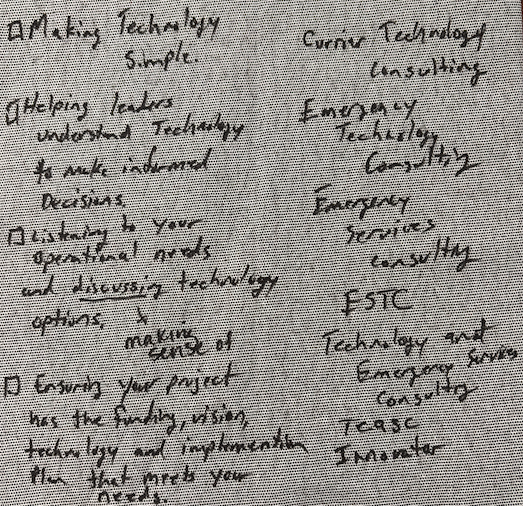 □ Making Technology
Simple.
□ Helping leaders
understand Technology
to make informed
Decisions.
□ Listening to your
operational needs
and discussing technology
options,
making
sense of
□ Ensuring your project
has the funding, vision,
technology and implemention
Plan that meets your
needs.
Currier Technology
Consulting
Emergency
Technology
Consulting
Emergency
Services
Consulting
ESTC
Technology and
Emergency Services
Consulting
TCASC
Innovator